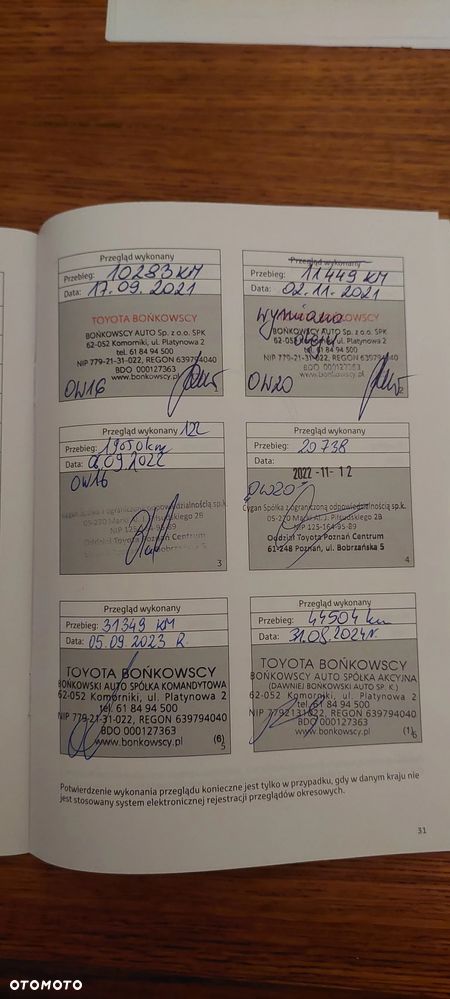 Przegląd wykonany
Przebieg: 10283 KM
Data: 17.09.2021
TOYOTA BOŃKOWSCY
BOŃKOWSCY AUTO Sp. z o.o. SPK
62-052 Komorniki, ul. Platynowa 2
tel. 61 84 94 500
NIP 779-21-31-022, REGON 639794040
BDO 000127363
www.bonkowscy.pl
OW16
1
Przegląd wykonany
Przebieg: 11449 KM
Data: 02.11.2021
Wymiana
BOŃKOWSCY
BOŃKOWSCY AUTO Sp. z o.o. SPK
62-052 Komorniki, ul. Platynowa 2
tel. 61 84 94 500
NIP 779-21-31-022, REGON 639794040
BDO 000127363
www.bonkowscy.pl
OW20
2
Przegląd wykonany
Przebieg: 19050 km
Data:
OW16
Cygan Spółka z ograniczoną odpowiedzialnością sp.k.
05-270 Marki Al. J. Piłsudskiego 2B
NIP 125-164-95-89
Oddział Toyota Poznań Centrum
61-248 Poznań, ul. Bobrzańska 5
3
Przegląd wykonany
Przebieg: 20738
Data:
2022 -11- 12
OW20
Cygan Spółka z ograniczoną odpowiedzialnością sp.k.
05-270 Marki Al. J. Piłsudskiego 2B
NIP 125-164-95-89
Oddział Toyota Poznań Centrum
61-248 Poznań, ul. Bobrzańska 5
4
Przegląd wykonany
Przebieg: 31349 KM
Data: 05.09 2023 R.
TOYOTA BOŃKOWSCY
BOŃKOWSKI AUTO SPÓŁKA KOMANDYTOWA
62-052 Komorniki, ul. Platynowa 2
tel. 61 84 94 500
NIP 779-21-31-022, REGON 639794040
BDO 000127363
www.bonkowscy.pl
(6)
5
Przegląd wykonany
Przebieg: 44504 km
Data: 31.08.2024r.
TOYOTA BOŃKOWSCY
BOŃKOWSCY AUTO SPÓŁKA AKCYJNA
(DAWNIEJ BOŃKOWSKI AUTO SP. K.)
62-052 Komorniki, ul. Platynowa 2
tel. 61 84 94 500
NIP 7792131022, REGON 639794040
BDO 000127363
www.bonkowscy.pl
(1)
6
Potwierdzenie wykonania przeglądu konieczne jest tylko w przypadku, gdy w danym kraju nie
jest stosowany system elektronicznej rejestracji przeglądów okresowych.
31
OTOMOTO